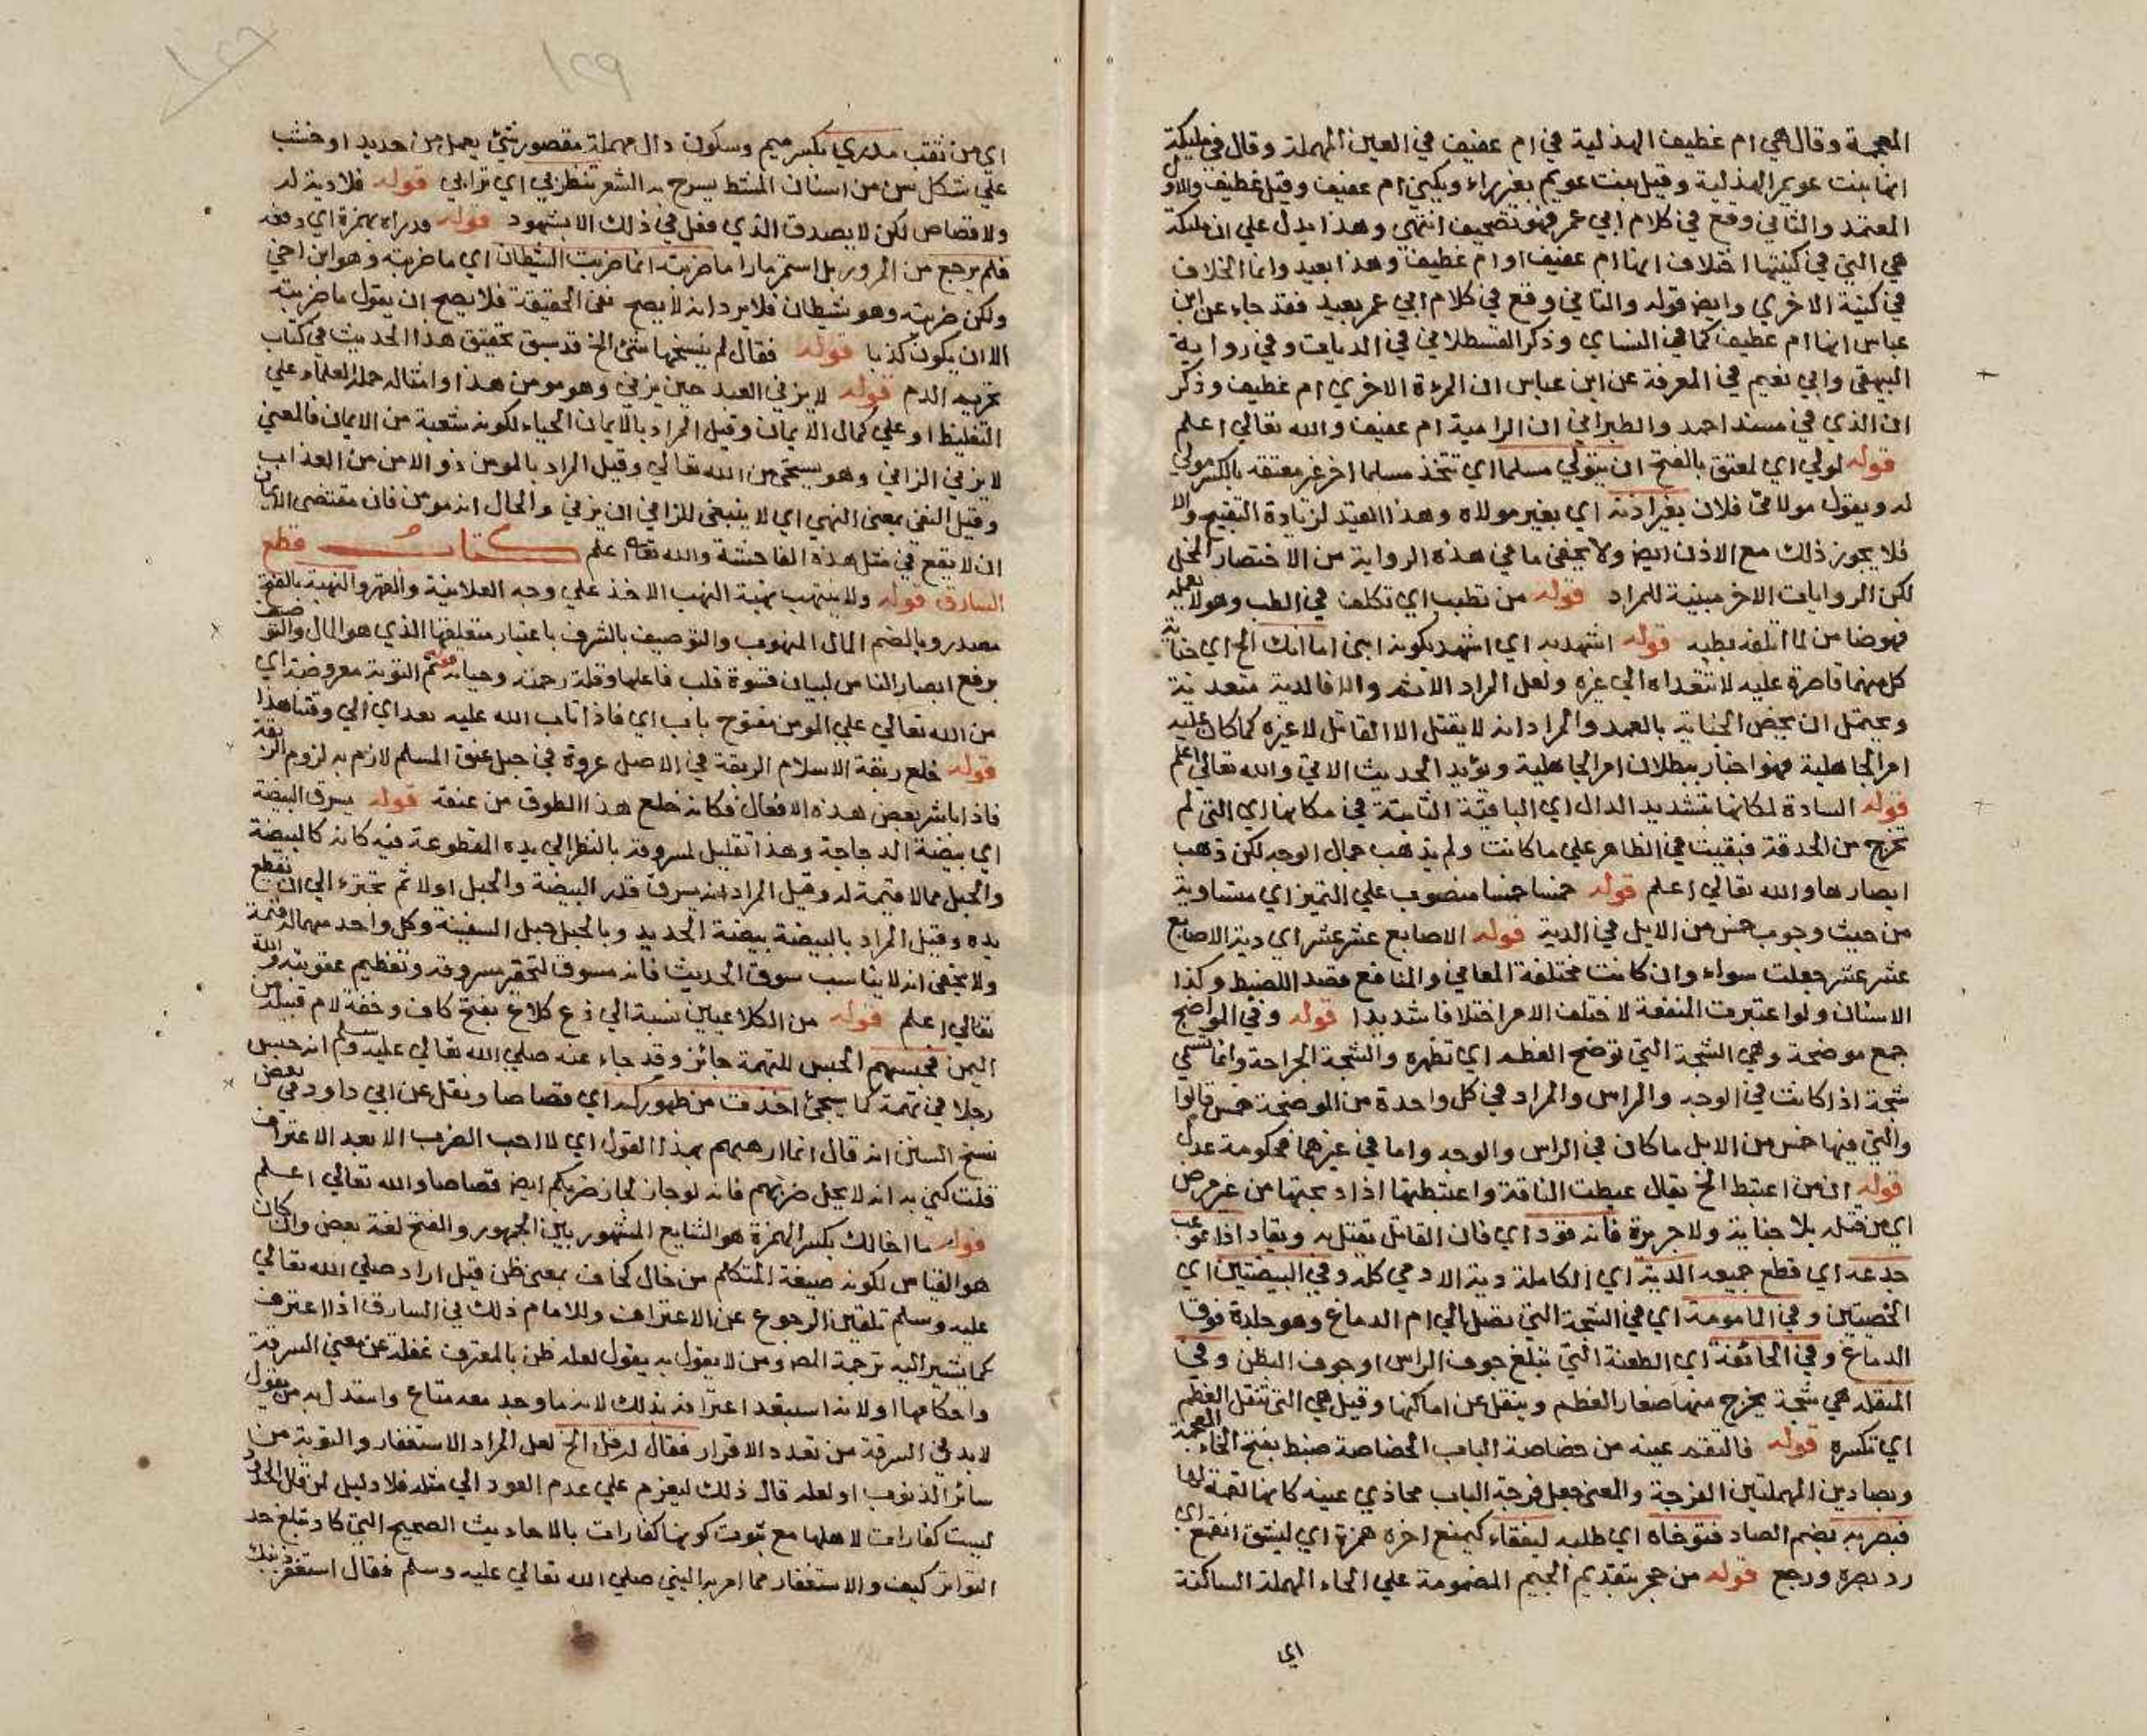 المعجمة وقال هي ام غطيف الهذلية في ام عفيف في العين المهملة وقال في مليكة
انها بنت عويمر الهذلية وقيل بنت عويم بغير راء ويكنى ام عفيف وقيل غطيف والاول
المعتمد والثاني وقع في كلام ابي عمر فهو تصحيف انتهى وهذا يدل علي ان مليكة
هي التي في كنيتها اختلاف انها ام عفيف او ام غطيف وهذا بعيد وانما الخلاف
في كنية الاخري وايض قوله والثاني وقع في كلام ابي عمر بعيد فقد جاء عن ابن
عباس انها ام غطيف كما في النساي وذكر القسطلاني في الديات وفي رواية
البيهقي وابي نعيم في المعرفة عن ابن عباس ان المرءة الاخري ام غطيف وذكر
ان الذي في مسند احمد والطبراني ان الرامية ام عفيف والله تعالي اعلم
قوله لولي اي لمعتق بالفتح ان يتولي مسلما اي يتخذ مسلما اخر غير معتقه بالكسر مولي
له ويقول مولاي فلان بغير اذنه اي بغير مولاه وهذا القيد لزيادة التقبيح والا
فلا يجوز ذلك مع الاذن ايض ولا يخفى ما في هذه الرواية من الاختصار المخل
لكن الروايات الاخر مبينة للمراد قوله من تطبب اي تكلف في الطب وهو لا يعلمه
فهو ضامن لما اتلفه بطبه قوله اشهد به اي اشهد بكونه ابني اما انك الخ اي جناية
كل منهما قاصرة عليه لا تتعداه الي غيره ولعل المراد الاثم والا فالدية متعدية
ويحتمل ان يخص الجناية بالعمد والمراد انه لا يقتل الا القاتل لا غيره كما كان عليه
امر الجاهلية فهو اخبار ببطلان امر الجاهلية ويؤيد الحديث الاتي والله تعالي اعلم
قوله السادة لمكانها بتشديد الدال اي الباقية الثابتة في مكانها اي التي لم
تخرج من الحدقة فبقيت في الظاهر علي ما كانت ولم يذهب جمال الوجه لكن ذهب
ابصارها والله تعالي اعلم قوله خمسا خمسا منصوب علي التمييز اي متساوية
من حيث وجوب خمس من الابل في الدية قوله الاصابع عشر عشر اي دية الاصابع
عشر عشر جعلت سواء وان كانت مختلفة المعاني والمنافع قصد اللضبط وكذا
الاسنان ولو اعتبرت المنفعة لاختلف الامر اختلافا شديدا قوله وفي المواضح
جمع موضحة وهي الشجة التي توضح العظم اي تظهره والشجة الجراحة وانما تسمي
شجة اذا كانت في الوجه والراس والمراد في كل واحدة من الموضحة خمس قالوا
والتي فيها خمس من الابل ما كان في الراس والوجه واما في غيرهما فحكومة عدل
قوله ان من اعتبط الخ يقال عبطت الناقة واعتبطتها اذا ذبحتها من غير مرض
اي من قتله بلا جناية ولا جريرة فانه قود اي فان القاتل يقتل به ويقاد اذا اوعب
جدعه اي قطع جميعه الدية اي الكاملة دية الادمي كله وفي البيضتين اي
الخصيتين وفي المامومة اي في الشجة التي تصل الي ام الدماغ وهو جلدة فوق
الدماغ وفي الجائفة اي الطعنة التي تبلغ جوف الراس او جوف البطن وفي
المنقله هي شجة يخرج منها صغار العظم وينقل عن اماكنها وقيل هي التي تنقل العظم
اي تكسره قوله فالتقم عينه من خصاصة الباب الخصاصة ضبط بفتح الخاء المعجمة
وبصادين المهملتين الفرجة والمعنى جعل فرجة الباب محاذي عينه كانها لقمة لها
فبصر به بضم الصاد فتوخاه اي طلبه ليفقاء كيمنع اخره همزة اي ليشق انقمع اي
رد بصره ورجع قوله من جحر بتقديم الجيم المضمومة علي الحاء المهملة الساكنة
اي
١٢٩
اي من ثقب مدري بكسر ميم وسكون دال مهملة مقصور شيئ يعمل من حديد او خشب
علي شكل سن من اسنان المشط يسرح به الشعر تنظرني اي تراني قوله فلا دية له
ولا قصاص لكن لا يصدق الذي فعل في ذلك الا بشهود قوله فدراه بهمزة اي دفعه
فلم يرجع من المرور بل استمر مارا ما ضربته انما ضربت الشيطان اي ما ضربته وهو ابن اخي
ولكن ضربته وهو شيطان فلا يرد انه لا يصح نفي الحقيقة فلا يصح ان يقول ما ضربته
الا ان يكون كذبا قوله فقال لم ينسخها شئ الخ قد سبق تحقيق هذا الحديث في كتاب
تحريم الدم قوله لا يزني العبد حين يزني وهو مومن هذا وامثاله حمله العلماء علي
التغليظ او علي كمال الايمان وقيل المراد بالايمان الحياء لكونه شعبة من الايمان فالمعني
لا يزني الزاني وهو يستحي من الله تعالي وقيل المراد بالمومن ذو الامن من العذاب
وقيل النفي بمعنى النهي اي لا ينبغي للزاني ان يزني والحال انه مومن فان مقتضى الايمان
ان لا يقع في مثل هذه الفاحشة والله تعالى اعلم كتاب قطع
السارق قوله ولا ينتهب نهبة النهب الاخذ علي وجه العلانية والقهر والنهبة بالفتح
مصدر وبالضم المال المنهوب والتوصيف بالشرف باعتبار متعلقها الذي هو المال والتوصيف
برفع ابصار الناس لبيان قسوة قلب فاعلها وقلة رحمته وحيائه قوله ثم التوبة معروضة اي
من الله تعالي علي المومن مفتوح باب اي فاذا تاب تاب الله عليه بعد اي الي وقتنا هذا
قوله خلع ربقة الاسلام الربقة في الاصل عروة في حبل عنق المسلم لازم به لزوم الربقة
فاذا باشر بعض هذه الافعال فكانه خلع هذا الطوق من عنقه قوله يسرق البيضة
اي بيضة الدجاجة وهذا تقليل لمسروقه بالنظر الي يده المقطوعة فيه كانه كالبيضة
والحبل مما لا قيمة له وقيل المراد انه يسرق قدر البيضة والحبل اولا ثم يجترء الي ان تقطع
يده وقيل المراد بالبيضة بيضة الحديد وبالحبل حبل السفينة وكل واحد منهما له قيمة
ولا يخفى انه لا يناسب سوق الحديث فانه مسوق لتحقير مسروقه وتعظيم عقوبته والله
تعالي اعلم قوله من الكلاعيين نسبة الي ذي كلاع بفتح كاف وخفة لام قبيلة من
اليمن فحبسهم الحبس للتهمة جائز وقد جاء عنه صلي الله تعالي عليه وسلم انه حبس
رجلا في تهمة كما سيجئ اخذت من ظهوركم اي قصاصا ونقل عن ابي داود في بعض
نسخ السنن انه قال انما ارهبهم بهذا القول اي لا احب الضرب الا بعد الاعتراف
قلت كني به انه لا يحل ضربهم فانه لو جاز لجاز ضربكم ايض قصاصا والله تعالي اعلم
قوله ما اخالك بكسر الهمزة هو الشايع المشهور بين الجمهور والفتح لغة بعض وان كان
هو القياس لكونه صيغة المتكلم من خال كخاف بمعنى ظن قيل اراد صلي الله تعالي
عليه وسلم تلقين الرجوع عن الاعتراف وللامام ذلك في السارق اذا اعترف
كما يشير اليه ترجمة المص ومن لا يقول به يقول لعله ظن بالمعترف غفلة عن معني السرقة
واحكامها اولا نه استبعد اعترافه بذلك لانه ما وجد معه متاع واستدل به من يقول
لا بد في السرقة من تعدد الاقرار فقال له قل الخ لعل المراد الاستغفار والتوبة من
سائر الذنوب او لعله قال ذلك ليعزم علي عدم العود الي مثله فلا دليل لمن قال الحدود
ليست كفارات لاهلها مع ثبوت كونها كفارات بالاحاديث الصحيح التي كاد تبلغ حد
التواتر كيف والاستغفار مما امر به النبي صلي الله تعالي عليه وسلم فقال استغفر لذنبك